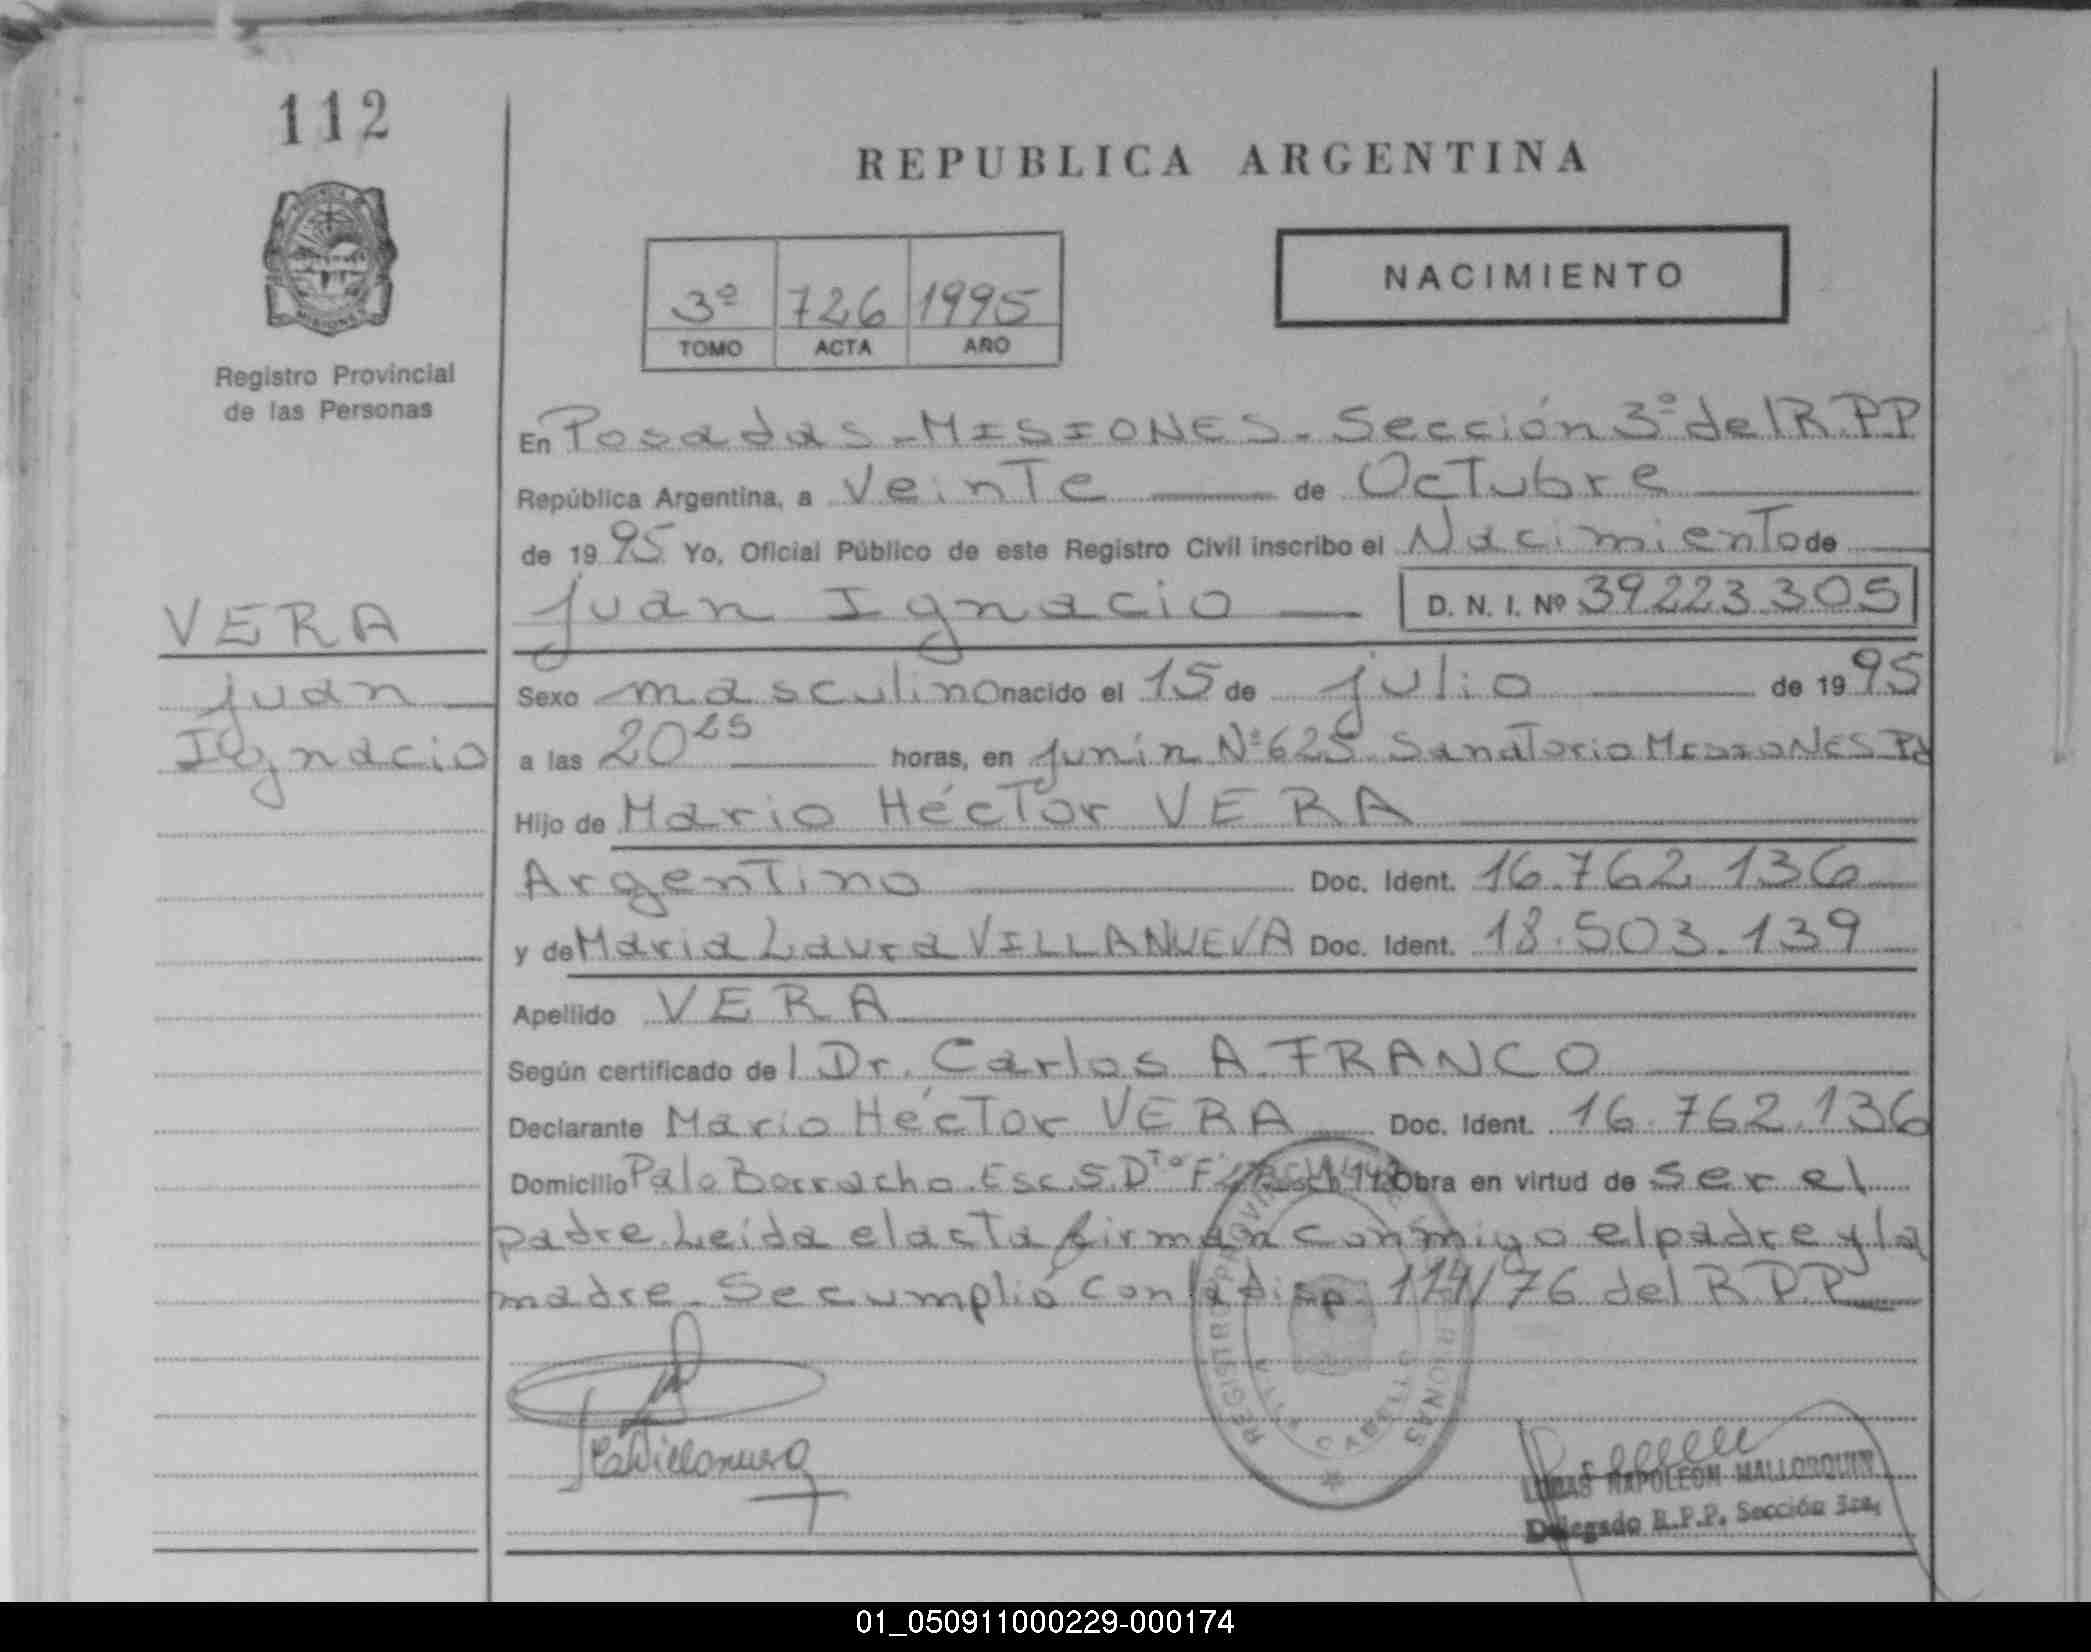 112
REPUBLICA ARGENTINA
NACIMIENTO
3º 726 1995
TOMO ACTA AÑO
Registro Provincial
de las Personas
En Posadas - MISIONES - Sección 3º del R.P.P
República Argentina, a Veinte de Octubre
de 1995 Yo, Oficial Público de este Registro Civil inscribo el Nacimiento de
Juan Ignacio D. N. I. Nº 39223305
VERA
Juan
Ignacio
Sexo masculino nacido el 15 de julio de 1995
a las 20 25 horas, en Junín Nº 625 Sanatorio MISIONES Pd
Hijo de Mario Héctor VERA
Argentino Doc. Ident. 16.762.136
y de Maria Laura VILLANUEVA Doc. Ident. 18.503.139
Apellido VERA
Según certificado del Dr. Carlos A. FRANCO
Declarante Mario Héctor VERA Doc. Ident. 16.762.136
Domicilio Palo Borracho Esc. 5 Dto F Obra en virtud de ser el
padre. Leída el acta firman conmigo el padre y la
madre - Se cumplió con la disp. 114/76 del R.P.P
REGISTRO PROVINCIAL
Villanueva
LUCAS NAPOLEON MALLORQUIN
Delegado R.P.P. Sección 3ra.
01_050911000229-000174